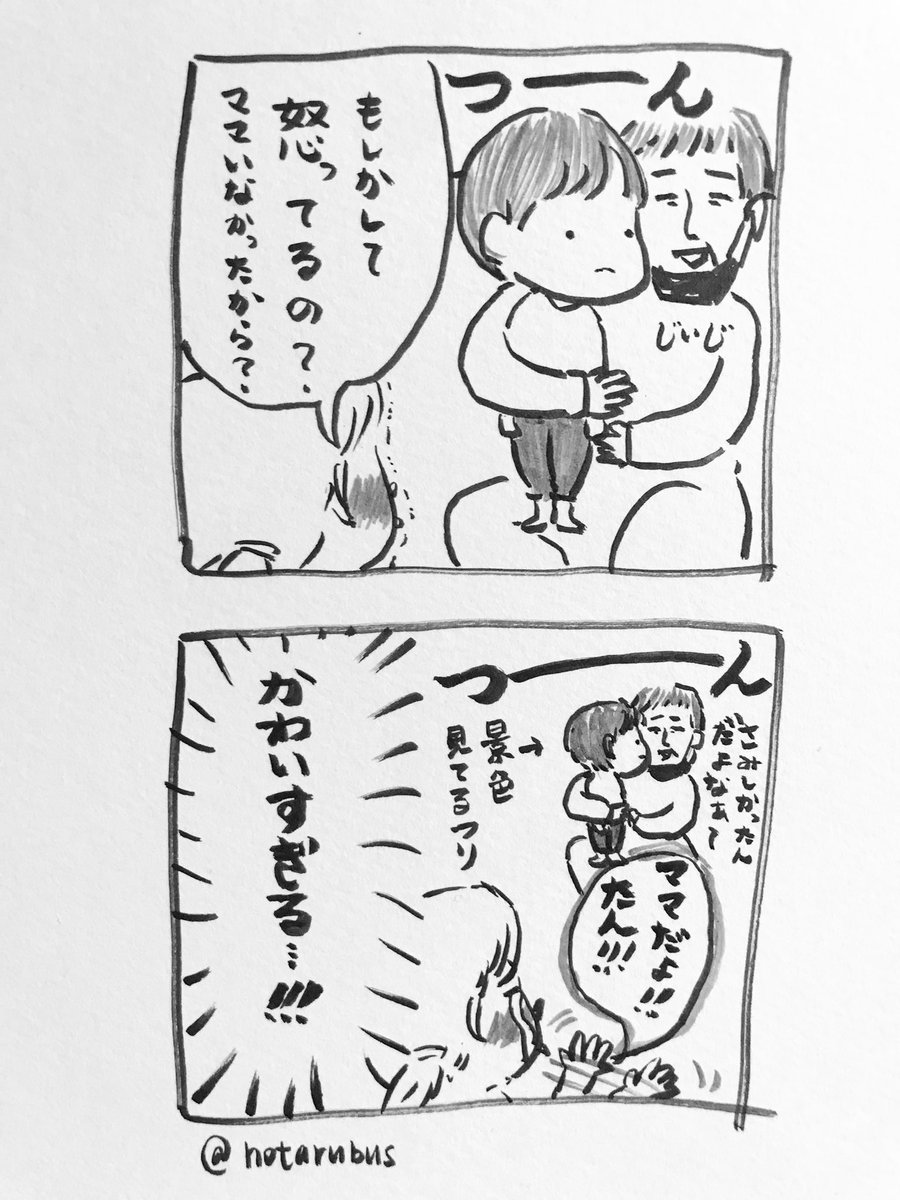 つーーん
じいじ
もしかして
怒ってるの?、
ママいなかったから?、
つーーーん
さみしかったん
だよなあて
→
景色
見てるフリ
ママだよ!!
たん!!!
かわいすぎる…!!!
@hotarubus